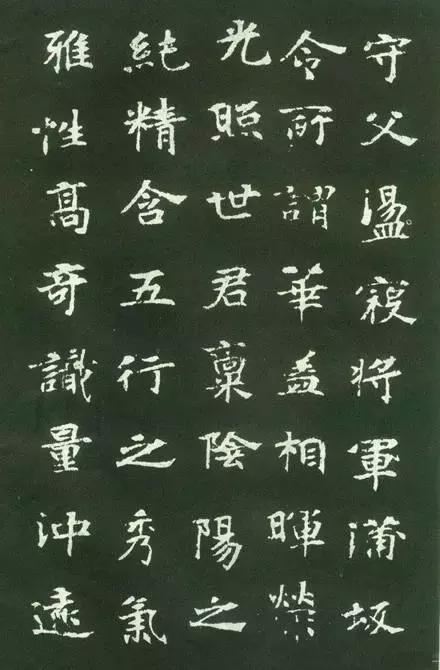 守父盪寇将軍蒲坂
令所謂華盖相暉榮
光照世君稟陰陽之
純精含五行之秀氣
雅性髙奇識量沖遠